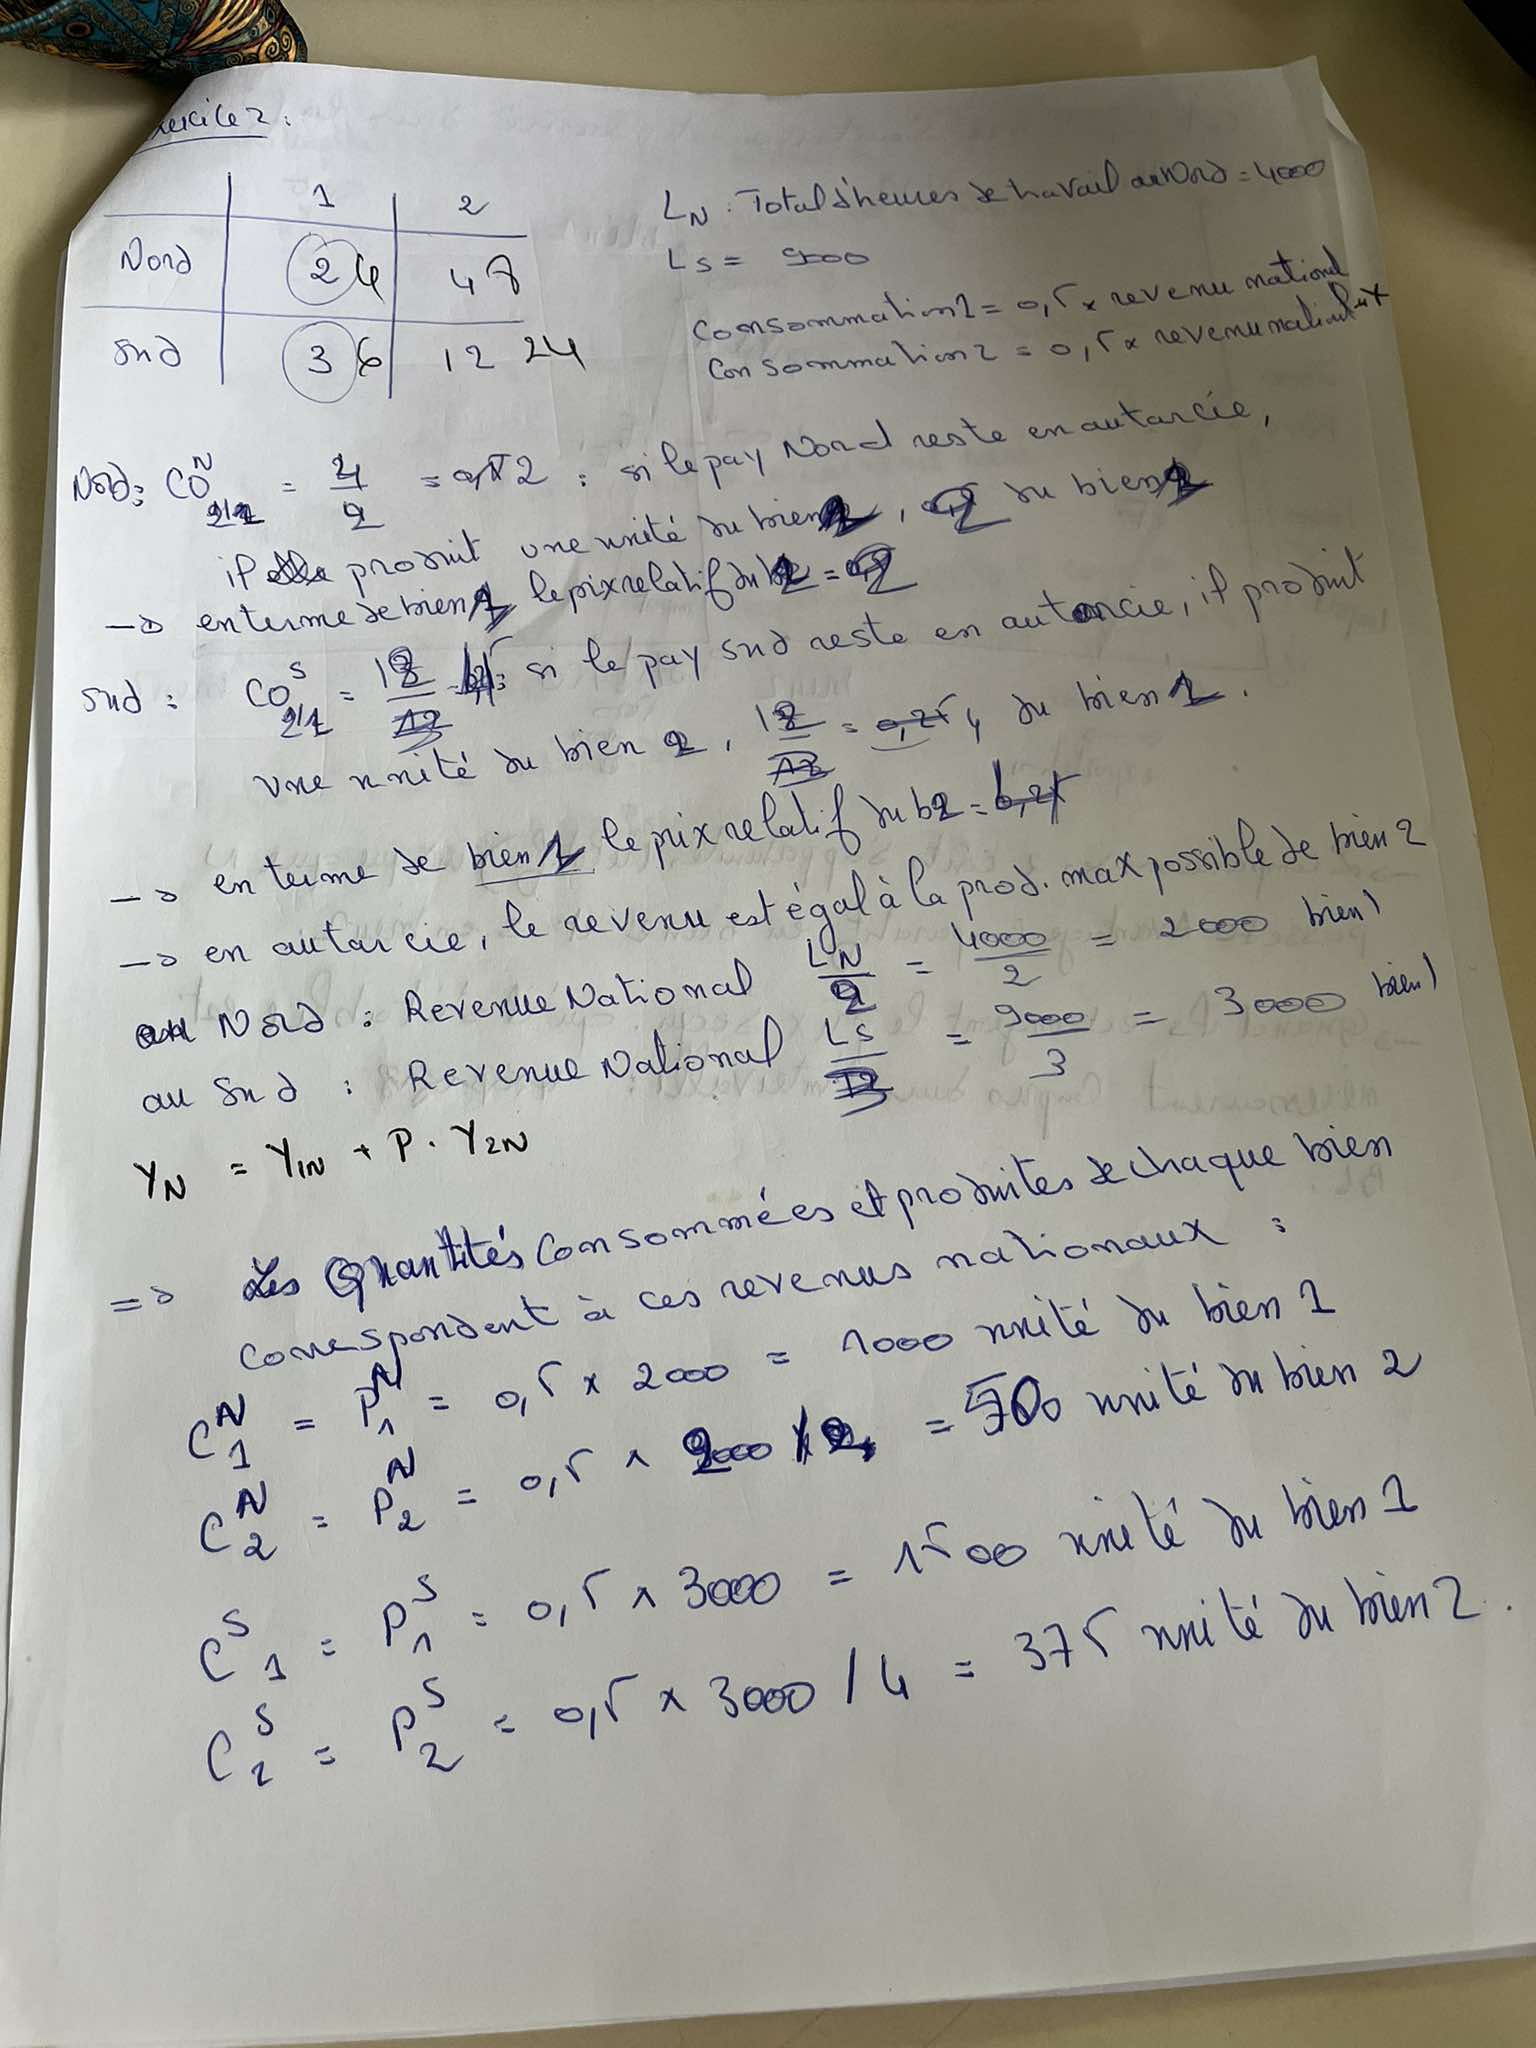 ercice 2 :
1 2
Nord 2 4 4 8
Sud 3 6 12 24
LN : Total d'heures de travail au Nord = 4000
LS = 9000
Consommation 1 = 0,5 x revenu national
Consommation 2 = 0,5 x revenu national
Nord : CO N 2/1 = 4/2 = 2 : si le pay Nord reste en autarcie,
il produit une unité du bien 2, 2 du bien 1
→ en terme de bien 1 le pix relatif du b2 = 2
Sud : CO S 2/1 = 12/3 : si le pay Sud reste en autarcie, il produit
une unité du bien 2, 12/3 = 4 du bien 1.
→ en terme de bien 1 le prix relatif du b2 =
→ en autarcie, le revenu est égal à la prod. max possible de bien 2
au Nord : Revenue National LN/2 = 4000/2 = 2000 bien 1
au Sud : Revenue National LS/3 = 9000/3 = 3000 bien 1
YN = Y1N + P · Y2N
=> Les Quantités consommées et produites de chaque bien
correspondent à ces revenus nationaux :
C N 1 = P N 1 = 0,5 x 2000 = 1000 unité du bien 1
C N 2 = P N 2 = 0,5 x 2000 / 2 = 500 unité du bien 2
C S 1 = P S 1 = 0,5 x 3000 = 1500 unité du bien 1
C S 2 = P S 2 = 0,5 x 3000 / 4 = 375 unité du bien 2.